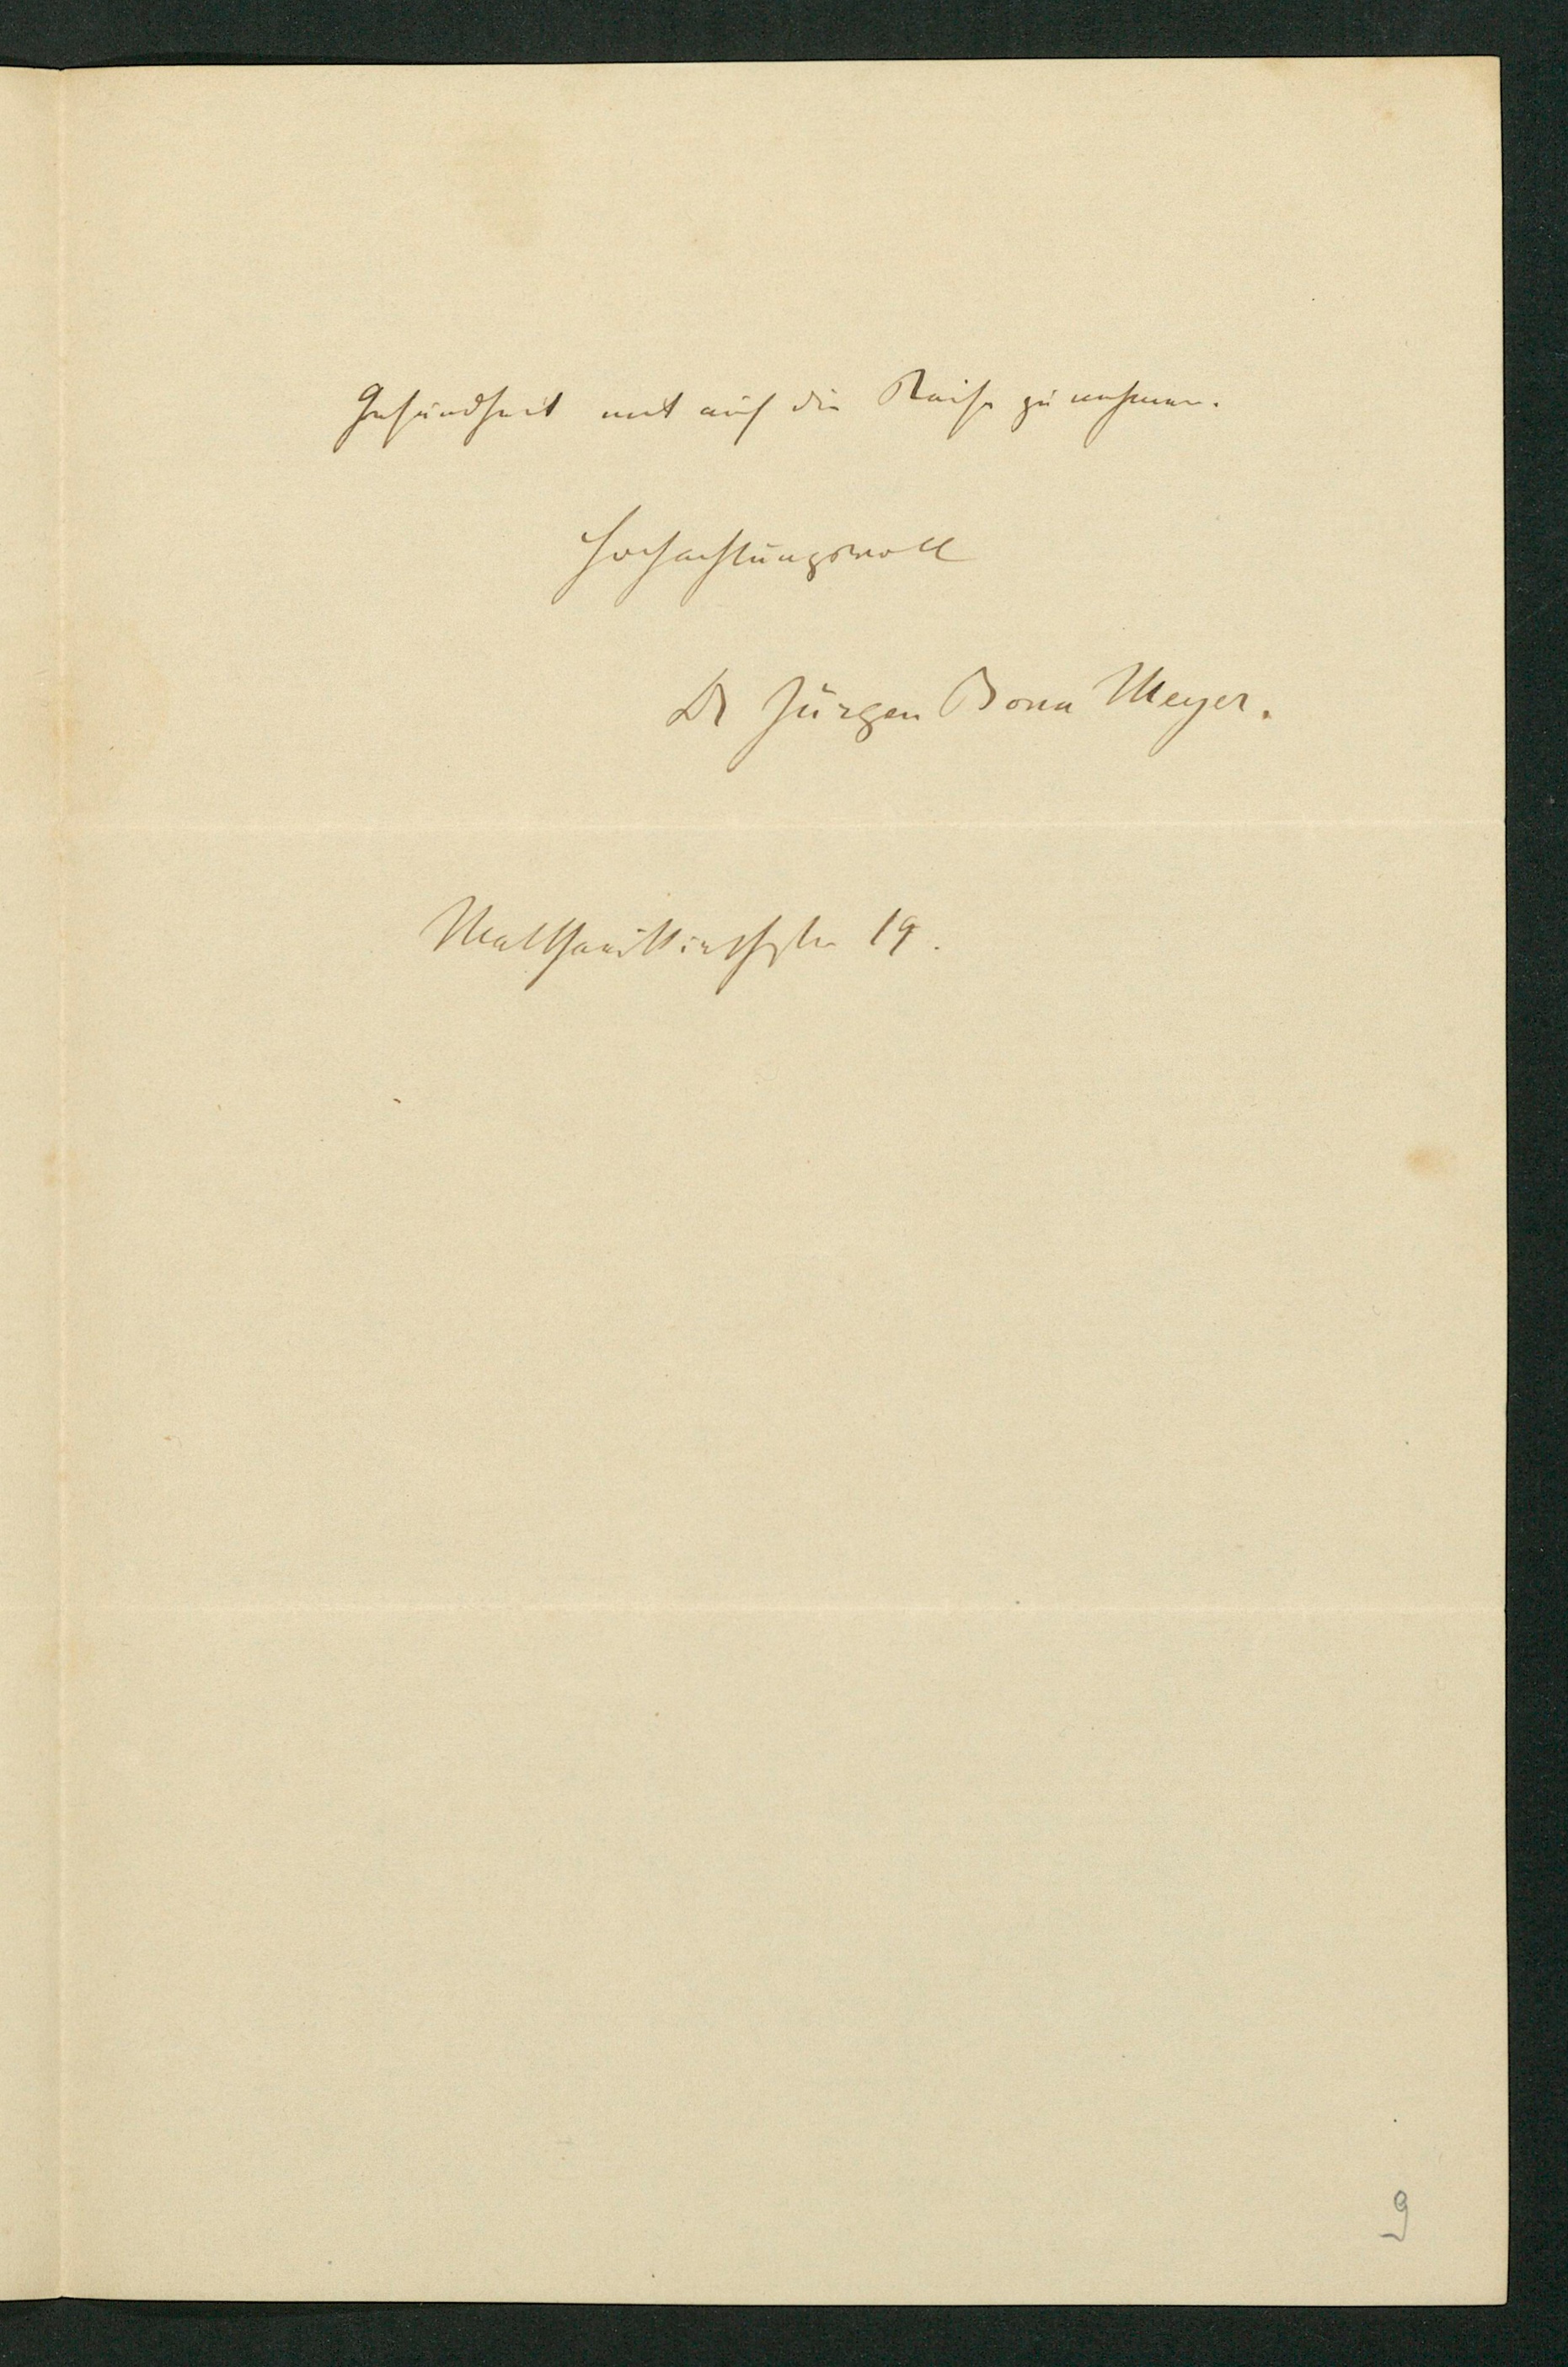 Gesundheit mit auf die Reise zu nehmen.
Hochachtungsvoll
Dr Jürgen Bona Meyer.
Matthäikirchstr 19.
9